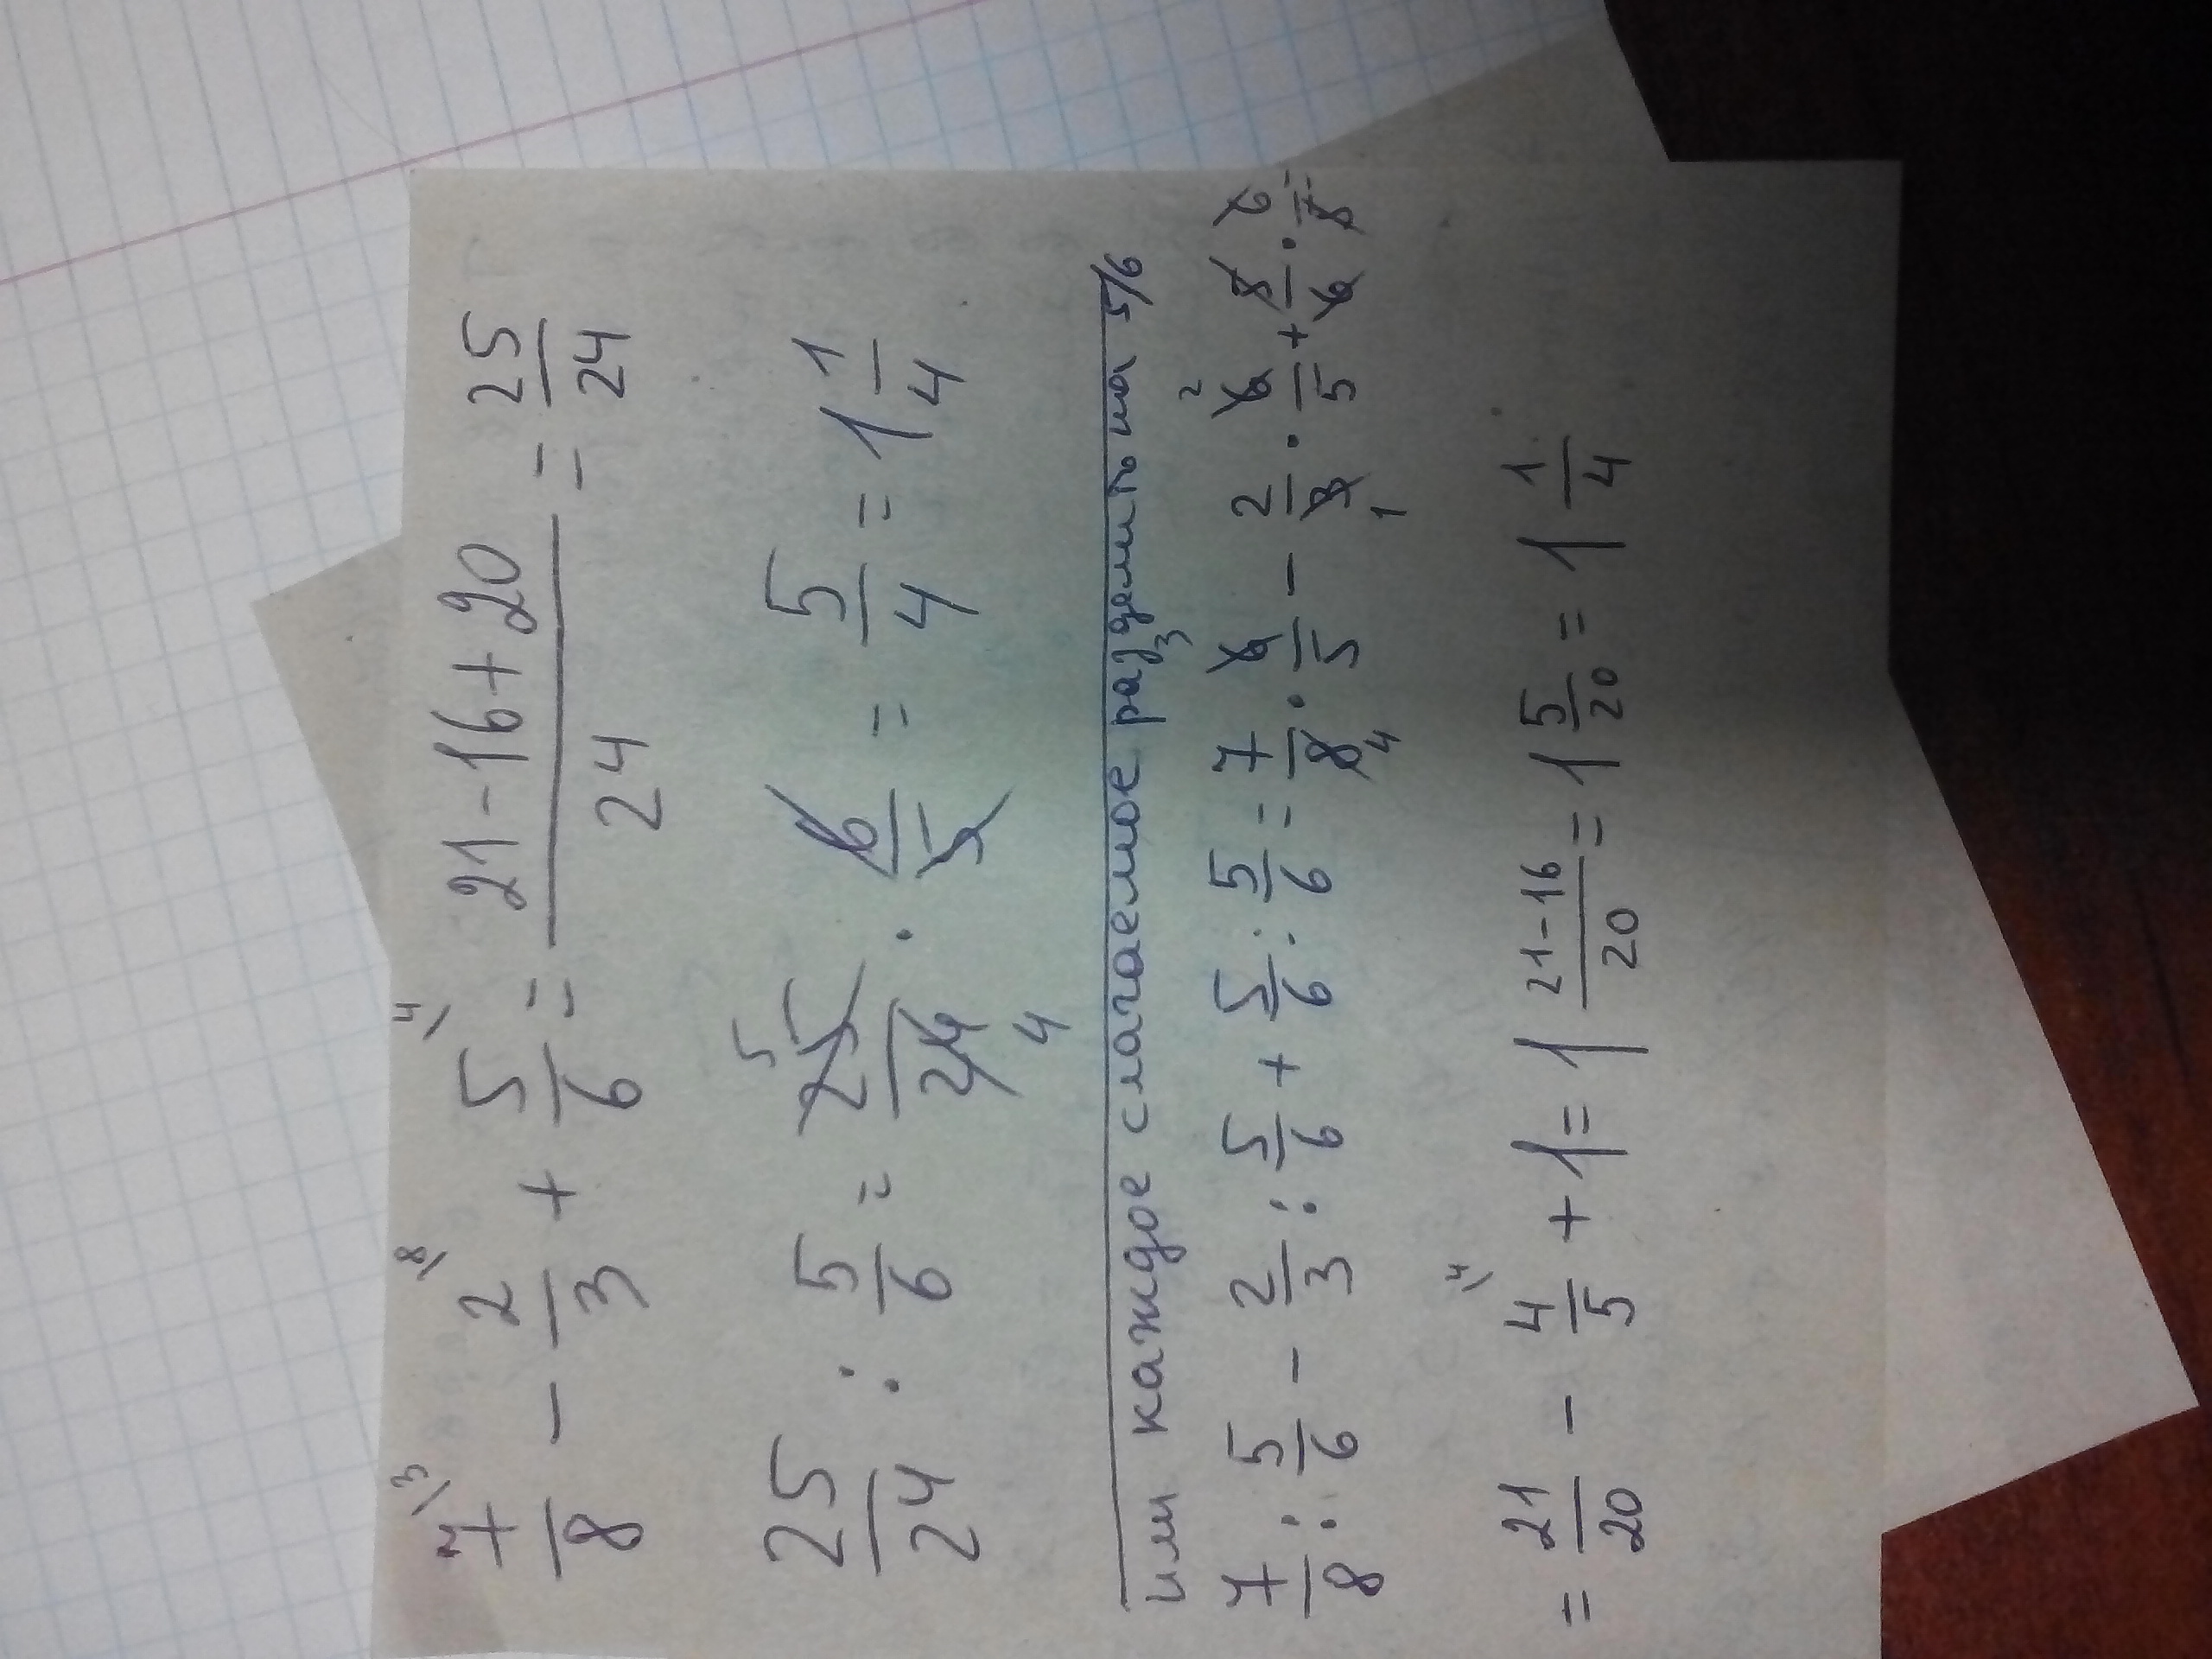 7/8 \3 - 2/3 \8 + 5/6 \4 = (21-16+20)/24 = 25/24
25/24 : 5/6 = 25/24 · 6/5 = 5/4 = 1 1/4
или каждое слагаемое разделить на 5/6
7/8 : 5/6 - 2/3 : 5/6 + 5/6 : 5/6 = 7/8 · 6/5 - 2/3 · 6/5 + 5/6 · 6/5 =
= 21/20 - 4/5 \4 + 1 = 1 (21-16)/20 = 1 5/20 = 1 1/4